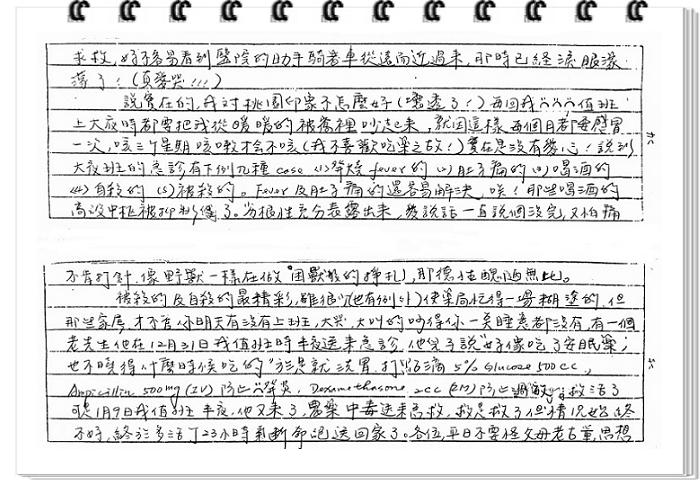 求救,好不容易看到醫院的助手騎著車從遠而近過來,那時已經淚眼滾
落了!(真要哭!!!)
說實在的,我對桃園印象不怎麼好(霉透了!)每回我
上大夜時都要把我從暖暖的被窩裡吵起來,就因這樣每個月都要感冒
一次,咳三个星期咳嗽才會不咳(我不喜歡吃藥之故!)實在是沒有
大夜班的急診有下例几種case (1)發燒fever的 (2)肚子痛的 (3)喝酒的
(4)自殺的 (5)被殺的。Fever及肚子痛的還容易解決,唉!那些喝酒的
高級中樞被抑制得了。劣根性充分表露出來,說話一直說個沒完,又怕痛
不肯打針,像野獸一樣在做"困獸般的掙扎,那德性醜陋無比。
被殺的及自殺的最精彩,雖很(也有例外)使藥局忙得一塌糊塗的,但
那些家屬,才不管你明天有沒有上班,大哭,大叫的吵得你一夾睡意都沒有,有一個
老先生他在12月31日我值班時半夜送來急診,他兒子說"好像吃了安眠藥;
也不曉得什麼時候吃的"於是就洗胃,打點滴 5% Glucose 500cc,
Ampicillin 500mg (IV) 防止肺炎。Dexamethasone 2cc (IM) 防止過敏,救活了
可是1月9日我值班半夜,他又來了,農藥中毒送來急救,救是救了但情況始終
不好,終於多活了23小時剩斷命跑送回家了。各位,平日不要怪父母老古董,思想